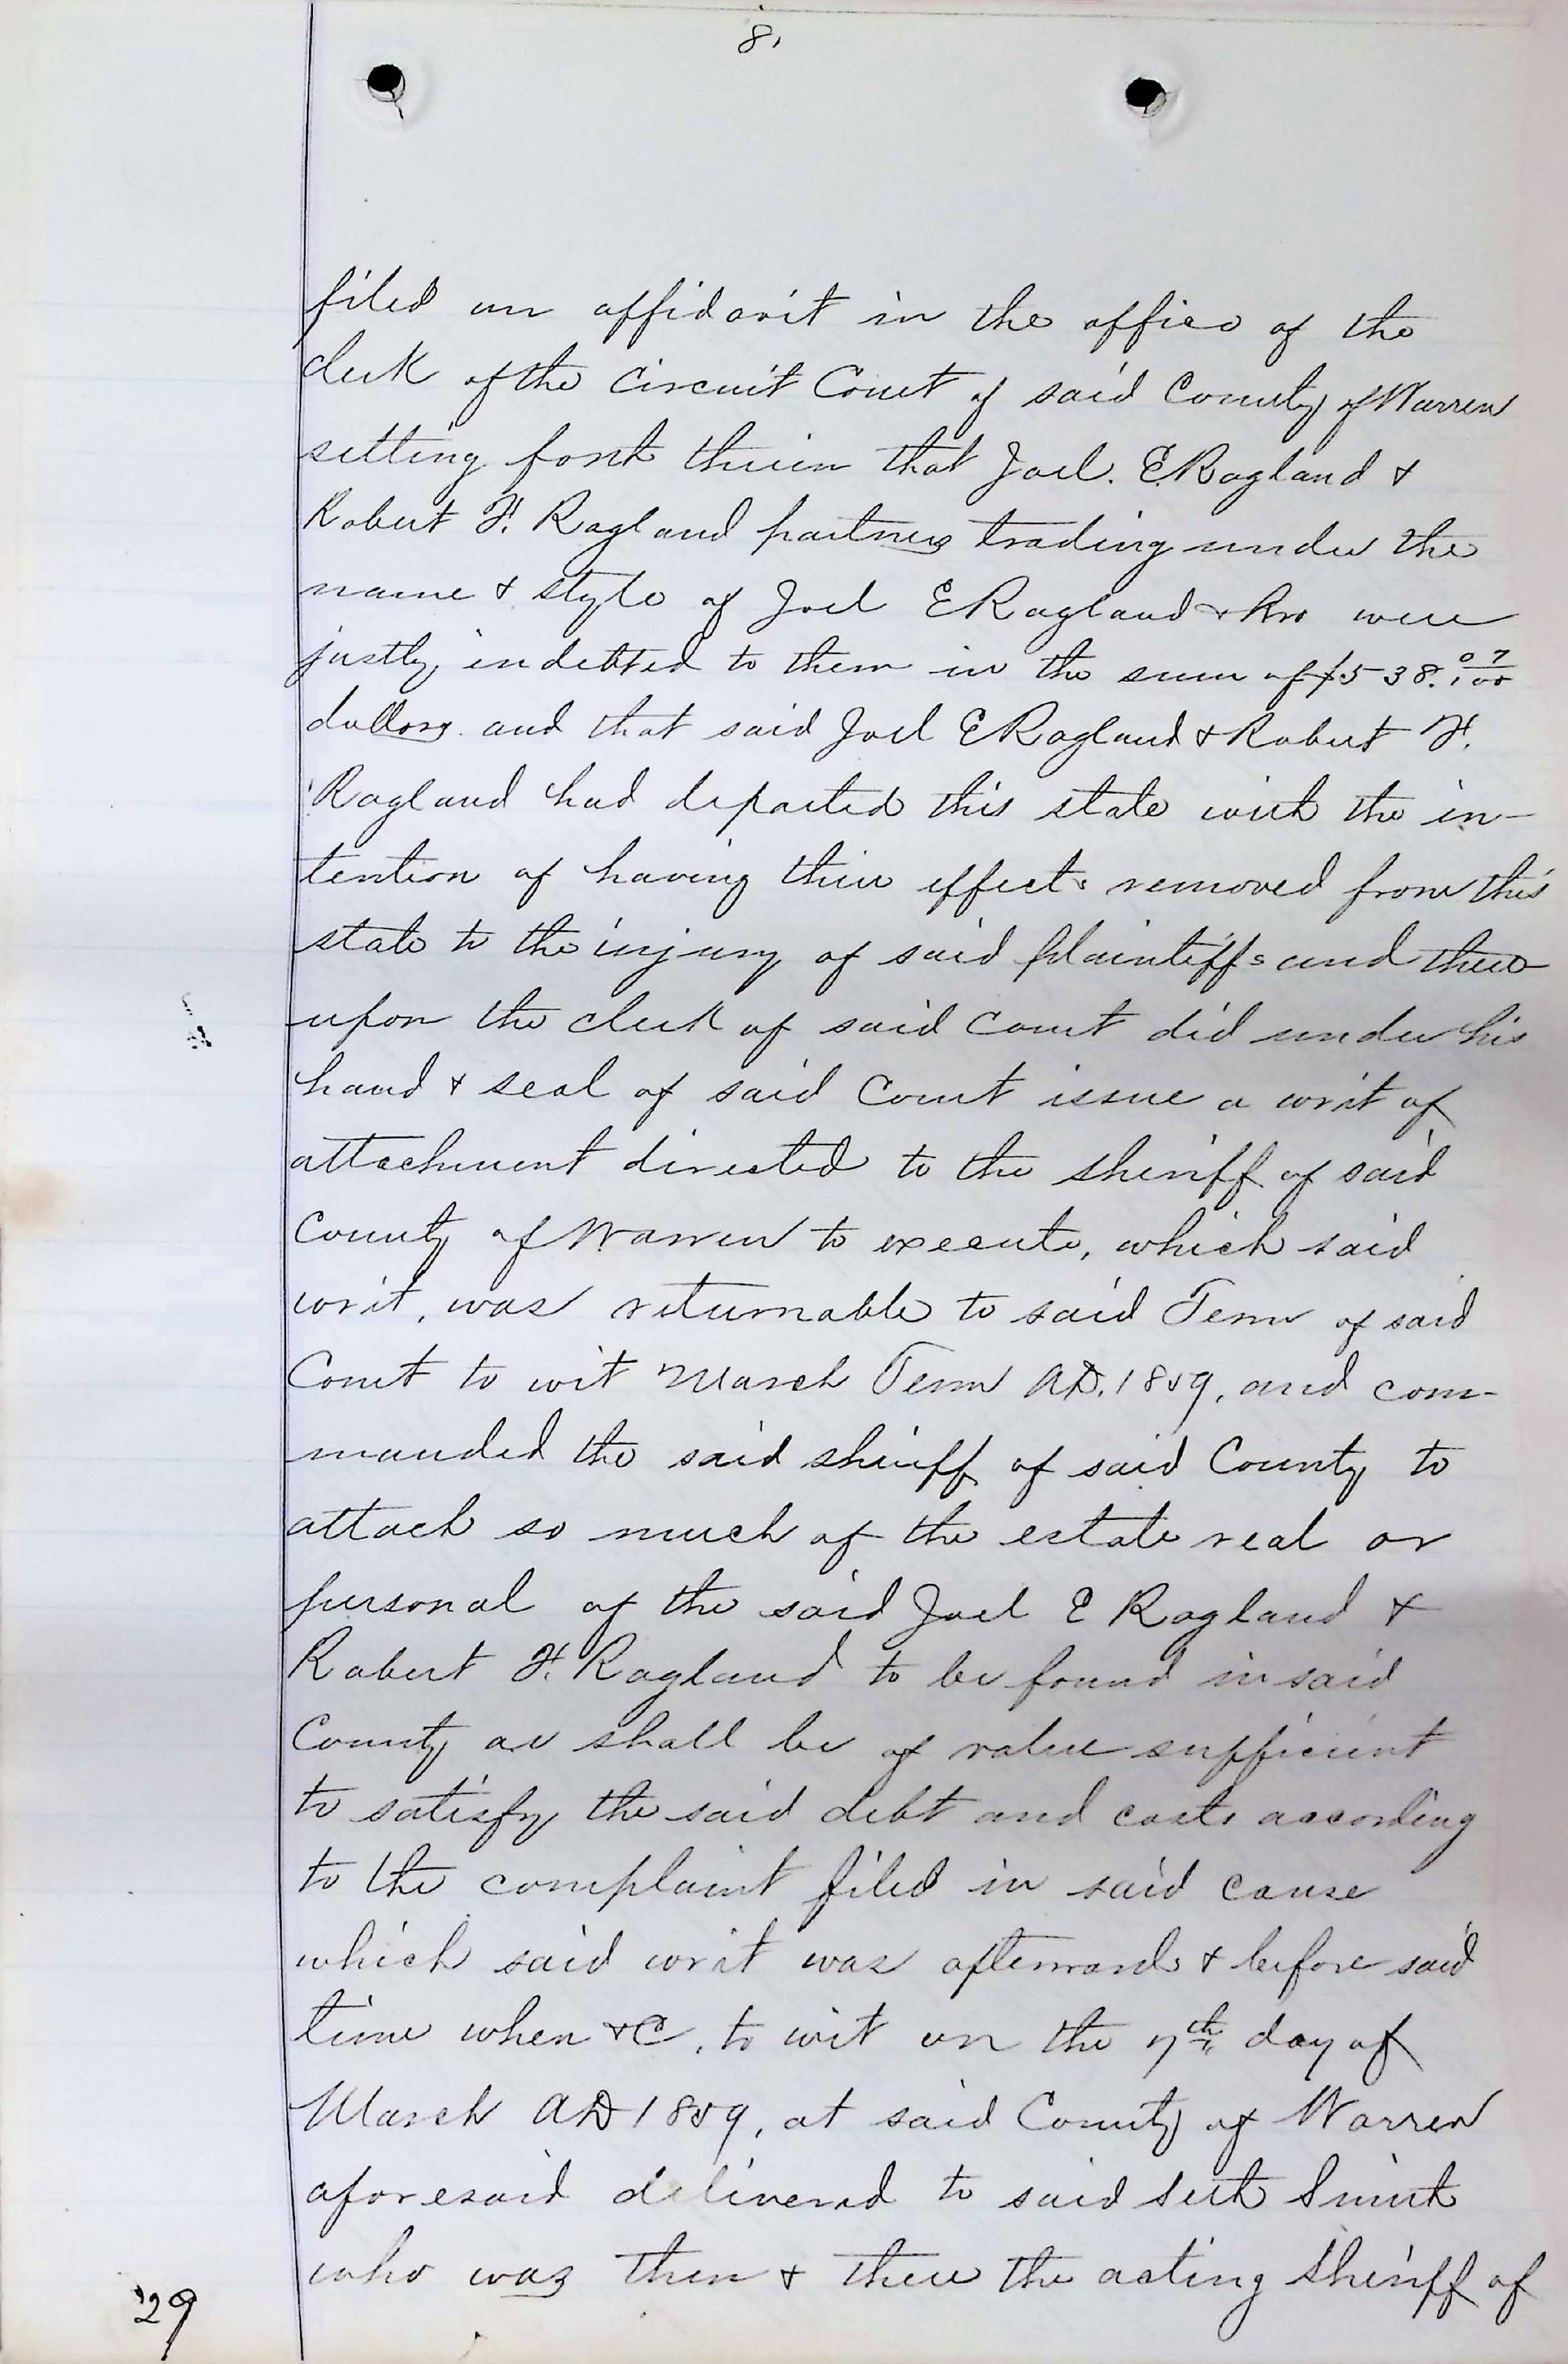 8,
filed an affidavit in the office of the
clerk of the Circuit Court of said County of Warren
setting forth therein that Joel. E. Ragland &
Robert F. Ragland partners trading under the
name & style of Joel E Ragland & Bro were
justly indebted to them in the sum of $538.07/100
dollars and that said Joel E Ragland & Robert F.
Ragland had departed this state with the in-
tention of having their effects removed from this
state to the injury of said plaintiffs and there
upon the clerk of said Court did under his
hand & seal of said Court issue a writ of
attachment directed to the sheriff of said
County of Warren to execute, which said
writ, was returnable to said Term of said
Court to wit March Term AD. 1859, and com-
manded the said sheriff of said County to
attach so much of the estate real or
personal of the said Joel E Ragland &
Robert F. Ragland to be found in said
County as shall be of value sufficient
to satisfy the said debt and costs according
to the complaint filed in said cause
which said writ was afterwards & before said
time when &C, to wit on the 7th day of
March AD 1859, at said County of Warren
aforesaid delivered to said Seth Smith
who was then & there the acting Sheriff of
29